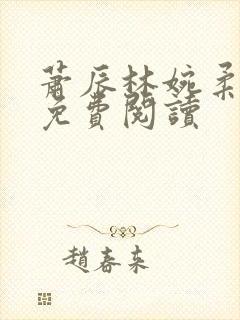 蕭辰林婉柔
免費閱讀
趙春來